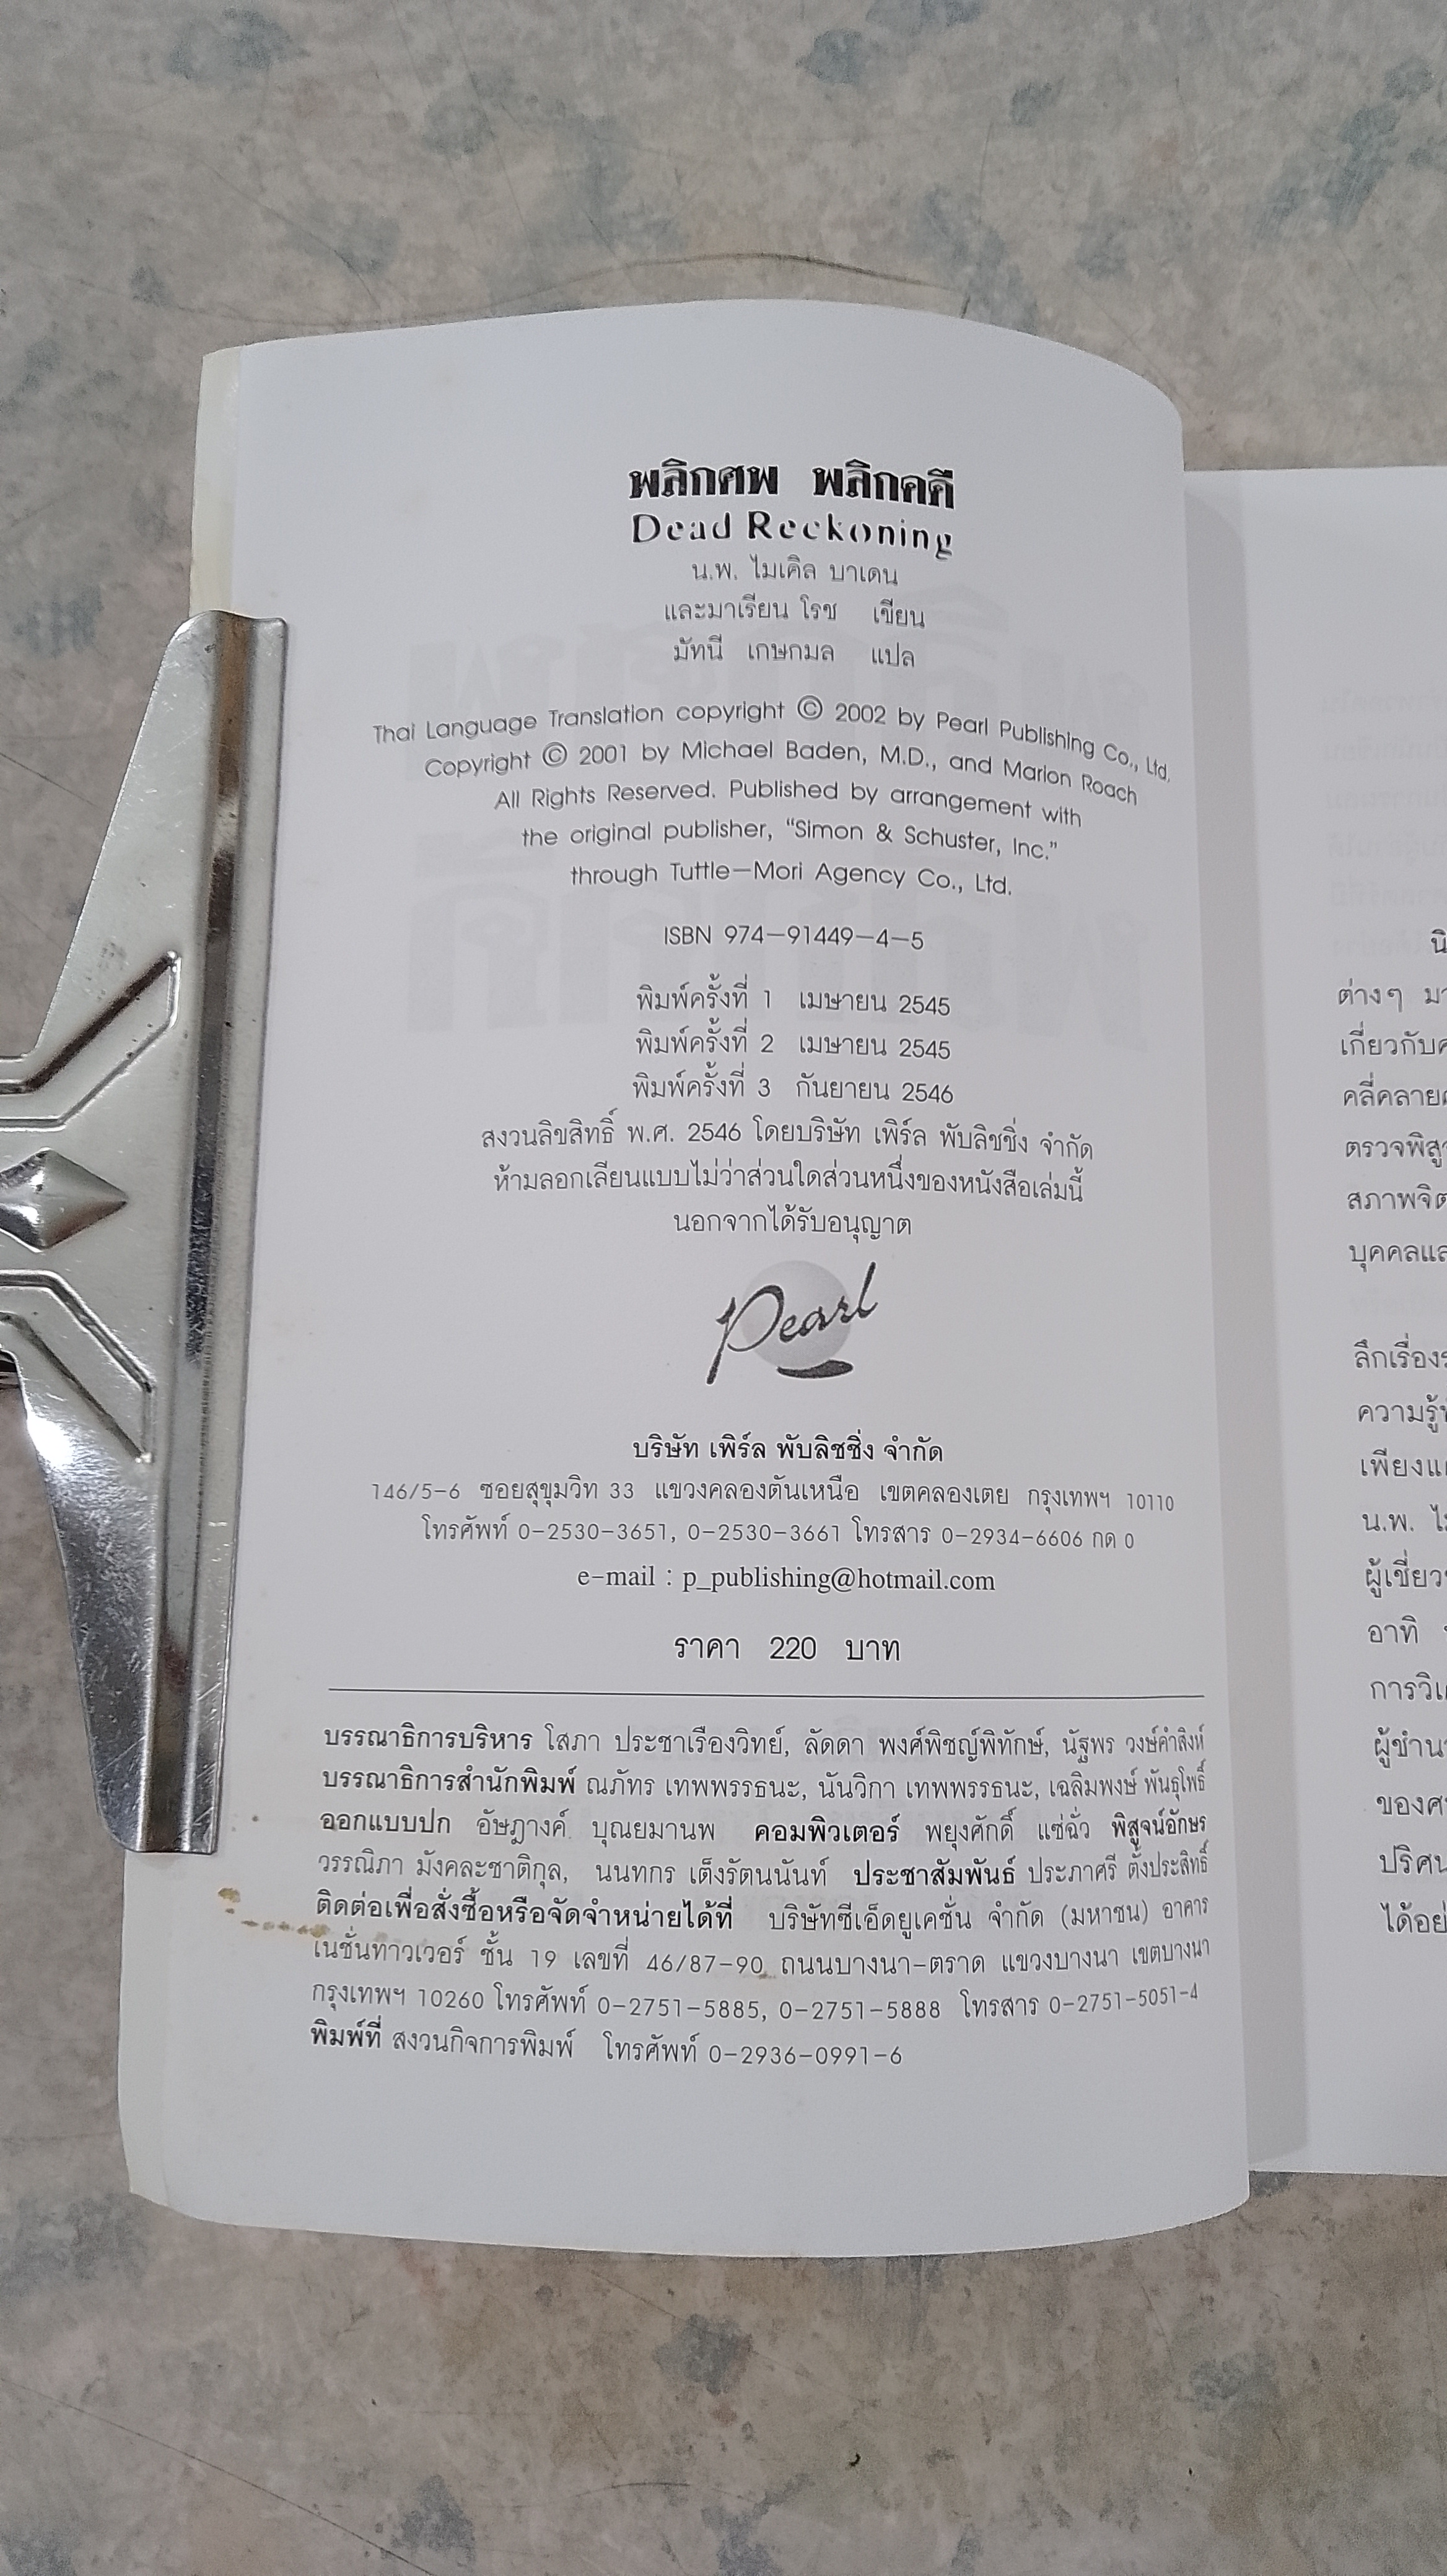 พลิกศพ พลิกคดี
Dead Reckoning
น.พ. ไมเคิล บาเดน
และมาเรียน โรช เขียน
มัทนี เกษกมล แปล
Thai Language Translation copyright © 2002 by Pearl Publishing Co., Ltd.
Copyright © 2001 by Michael Baden, M.D., and Marion Roach
All Rights Reserved. Published by arrangement with
the original publisher, “Simon & Schuster, Inc.”
through Tuttle–Mori Agency Co., Ltd.
ISBN 974–91449–4–5
พิมพ์ครั้งที่ 1 เมษายน 2545
พิมพ์ครั้งที่ 2 เมษายน 2545
พิมพ์ครั้งที่ 3 กันยายน 2546
สงวนลิขสิทธิ์ พ.ศ. 2546 โดยบริษัท เพิร์ล พับลิชชิ่ง จำกัด
ห้ามลอกเลียนแบบไม่ว่าส่วนใดส่วนหนึ่งของหนังสือเล่มนี้
นอกจากได้รับอนุญาต
Pearl
บริษัท เพิร์ล พับลิชชิ่ง จำกัด
146/5-6 ซอยสุขุมวิท 33 แขวงคลองตันเหนือ เขตคลองเตย กรุงเทพฯ 10110
โทรศัพท์ 0-2530-3651, 0-2530-3661 โทรสาร 0-2934-6606 กด 0
e-mail : p_publishing@hotmail.com
ราคา 220 บาท
บรรณาธิการบริหาร โสภา ประชาเรืองวิทย์, ลัดดา พงศ์พิชญ์พิทักษ์, นัฐพร วงษ์คำสิงห์
บรรณาธิการสำนักพิมพ์ ณภัทร เทพพรรธนะ, นันวิกา เทพพรรธนะ, เฉลิมพงษ์ พันธุ์โพธิ์
ออกแบบปก อัษฎางค์ บุณยมานพ คอมพิวเตอร์ พยุงศักดิ์ แซ่ฉั่ว พิสูจน์อักษร
วรรณิภา มังคละชาติกุล, นนทกร เต็งรัตนนันท์ ประชาสัมพันธ์ ประภาศรี ตั้งประสิทธิ์
ติดต่อเพื่อสั่งซื้อหรือจัดจำหน่ายได้ที่ บริษัทซีเอ็ดยูเคชั่น จำกัด (มหาชน) อาคาร
เนชั่นทาวเวอร์ ชั้น 19 เลขที่ 46/87-90 ถนนบางนา-ตราด แขวงบางนา เขตบางนา
กรุงเทพฯ 10260 โทรศัพท์ 0-2751-5885, 0-2751-5888 โทรสาร 0-2751-5051-4
พิมพ์ที่ สงวนกิจการพิมพ์ โทรศัพท์ 0-2936-0991-6
ต่างๆ
เกี่ยวกับ
คลี่คลาย
ลึกเรื่อง
ความรู้
น.พ.
อาทิ